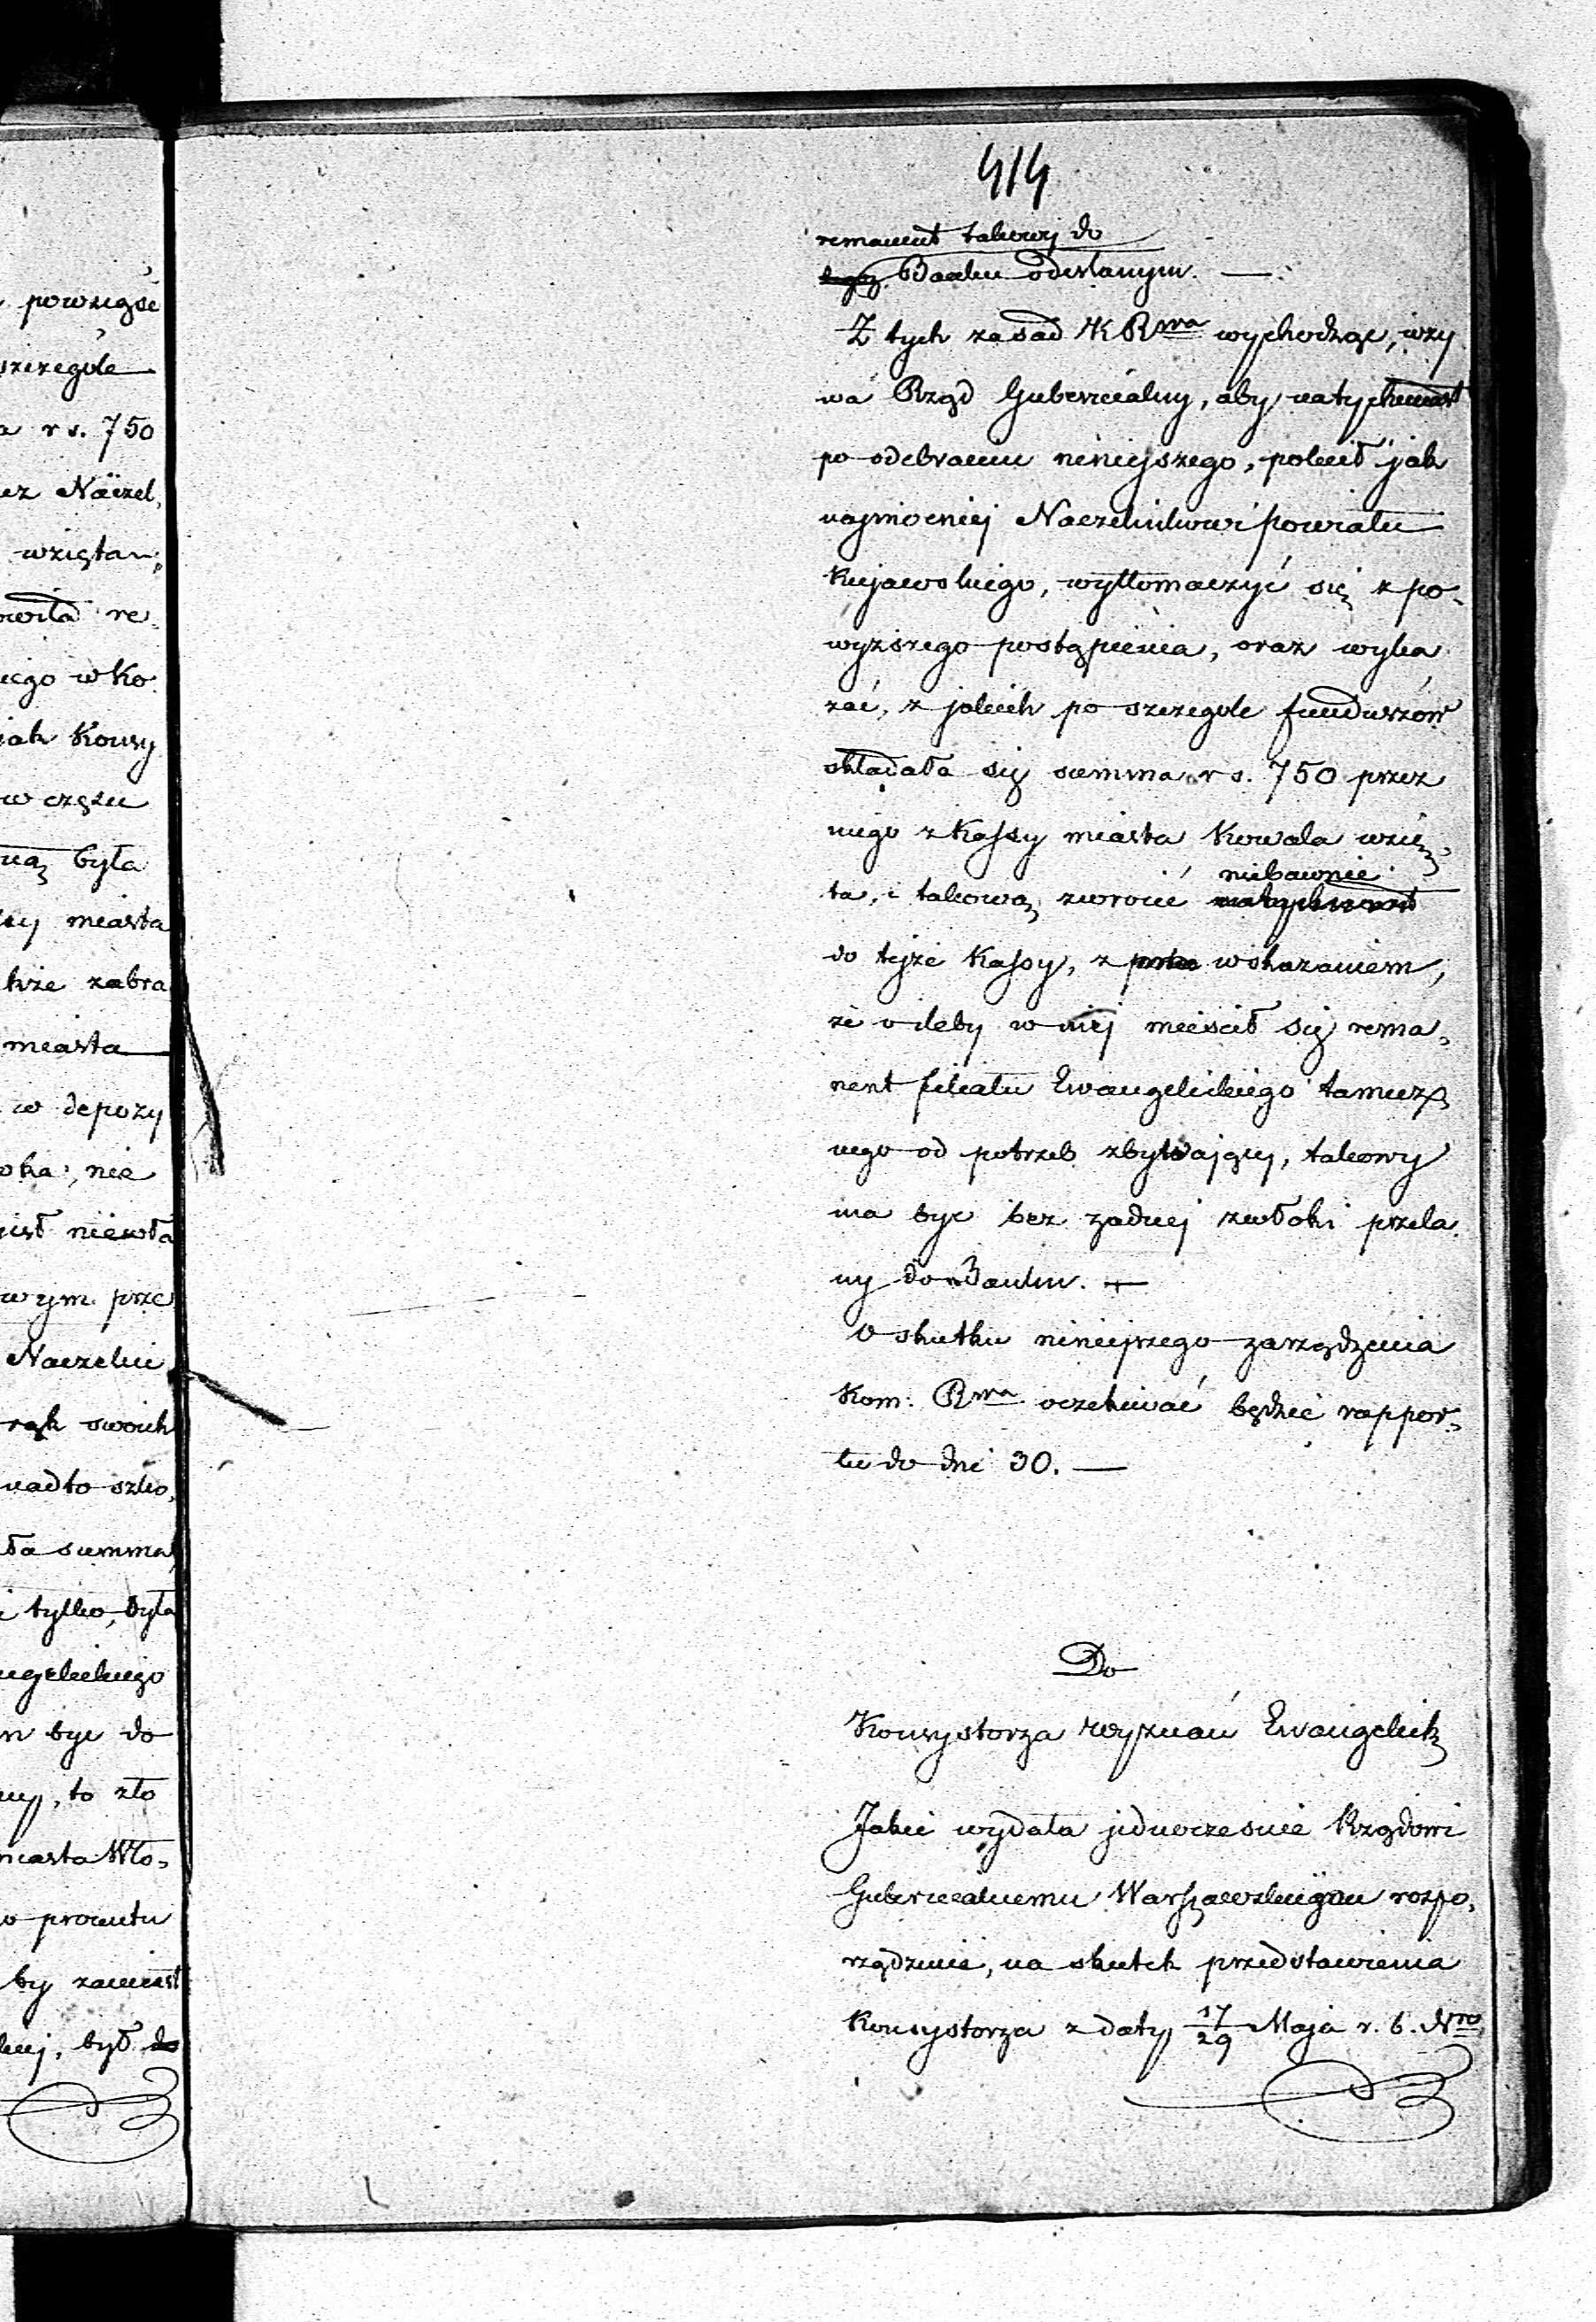 414
remanent takowy do
Banku odesłanym. —
Z tych zasad K Rwa wychodząc, wzy
wa Rząd Gubernialny, aby natychmiast
po odebraniu niniejszego, polecił jak
najmocniej Naczelnikowi powiatu
Kujawskiego, wytłomaczyć się z po-
wyższego postąpienia, oraz wyka
zać, z jakich po szczególe funduszów
składała się summa rs. 750 przez
niego z Kassy miasta Kowala wzię-
ta, i takową zwrócić natychmiast niebawnie
do tejże Kassy, z wskazaniem,
że gdyby w niej mieścił się rema-
nent filiału Ewangelickiego tamecz-
nego od potrzeb zbywający, takowy
ma być bez żadnej zwłoki przela
ny do Banku. —
O skutku niniejszego zarządzenia
Kom: Rwa oczekiwać będzie rappor-
tu do dni 30. —
Do
Konsystorza Wyznań Ewangelick
Jakie wydała jednocześnie Rządowi
Gubernialnemu Warszawskiemu rozpo-
rządzenie, na skutek przedstawienia
Konsystorza z daty 17/29 Maja r. b. Nro
powziąść
szczególe
rs. 750
Naczel.
wzięta
re
wKo
jak Konsy
w części
była
miasta
zabra
miasta
w depozy
nie
niewła
prze
Naczelni
rąk swoich
nadto szko
summa
tylko, była
być do
to zło
miasta Wło-
procentu
by zamiast
był do